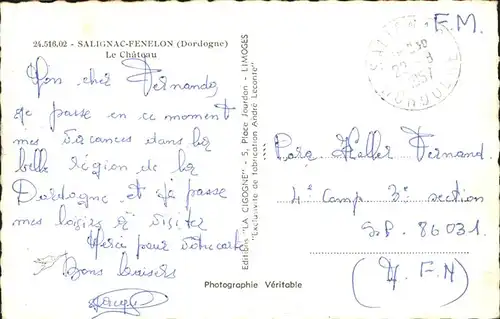 24.516.02 - SALIGNAC-FENELON (Dordogne)
Le Château
Mon cher Fernando
je passe en ce moment
mes vacances dans la
belle région de la
Dordogne et je passe
mes loisirs à visiter
Merci pour votre carte
Bons baisers
Editions "LA CIGOGNE" - 5, Place Jourdan - LIMOGES
"Exclusivité de fabrication André Leconte"
Photographie Véritable
F.M.
1957
DORDOGNE
Keller Fernand
4e Comp 3e section
S.P. 86031
(A.F.N)